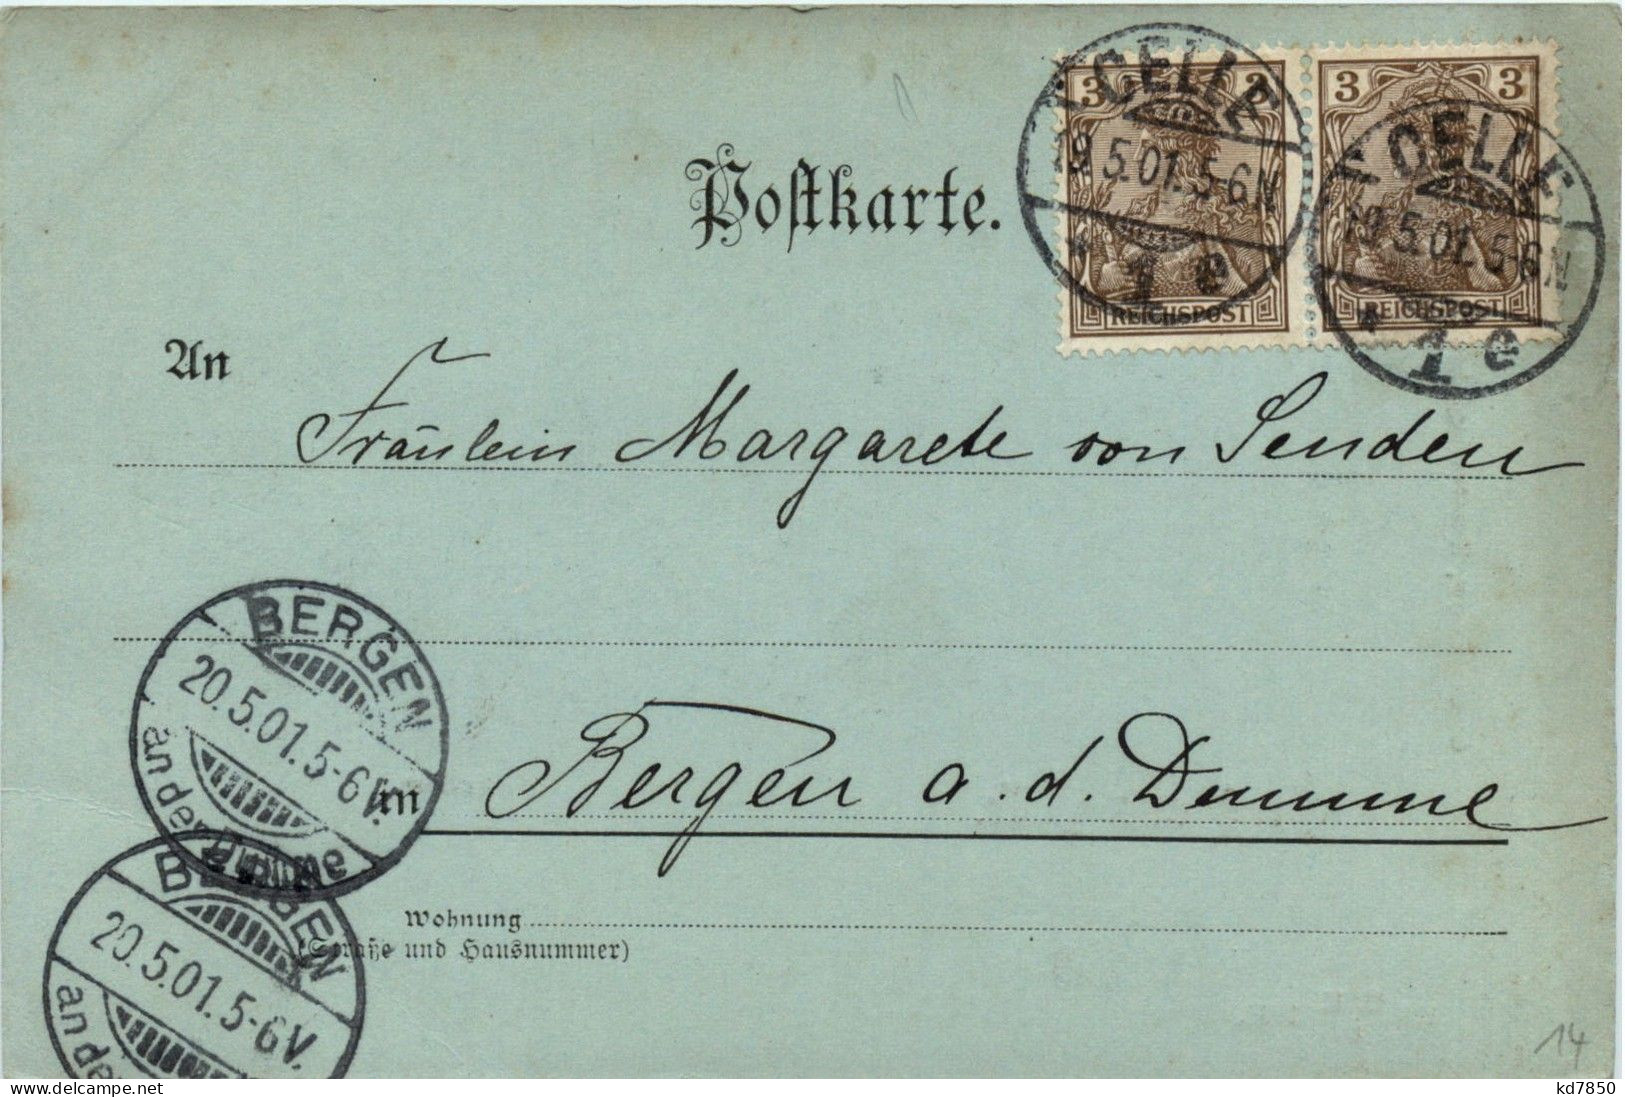 3 3 3 3
CELLE CELLE
19 5.01.5-6N 19 5.01.5-6N
* 1 e * 1 e
REICHSPOST REICHSPOST
Postkarte.
An
Fräulein Margarete von Senden
BERGEN
20.5.01.5-6V.
an der Dumme
in Bergen a. d. Dumme
BERGEN
20.5.01.5-6V.
an der
Wohnung
(Straße und Hausnummer)
14
delcampe.net
kd7850